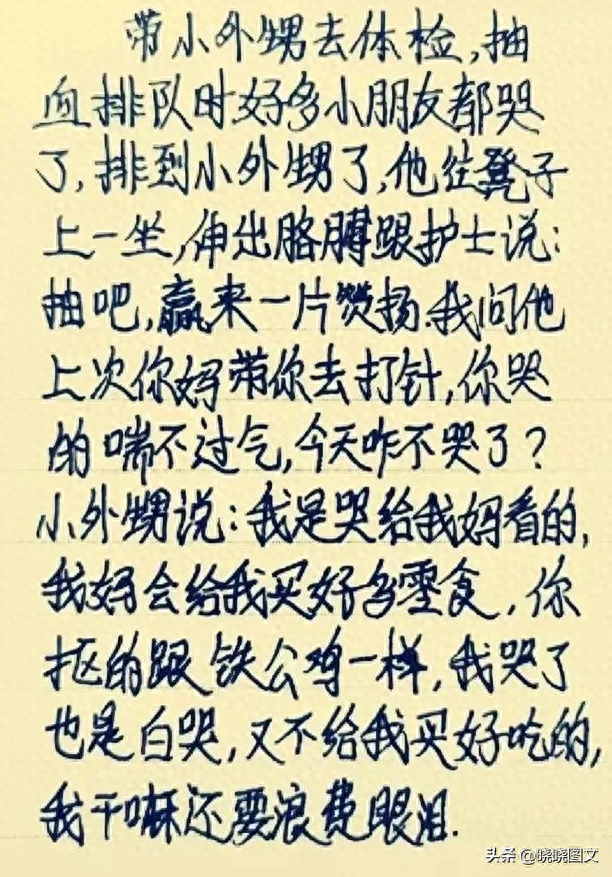 带小外甥去体检,抽
血排队时好多小朋友都哭
了,排到小外甥了,他往凳子
上一坐,伸出胳膊跟护士说:
抽吧,赢来一片赞扬.我问他
上次你妈带你去打针,你哭
的喘不过气,今天咋不哭了?
小外甥说:我是哭给我妈看的,
我妈会给我买好多零食,你
抠的跟铁公鸡一样,我哭了
也是白哭,又不给我买好吃的,
我干嘛还要浪费眼泪.
头条 @晓晓图文